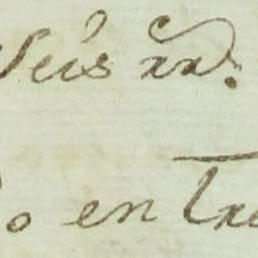 Seis xx.
o en tre